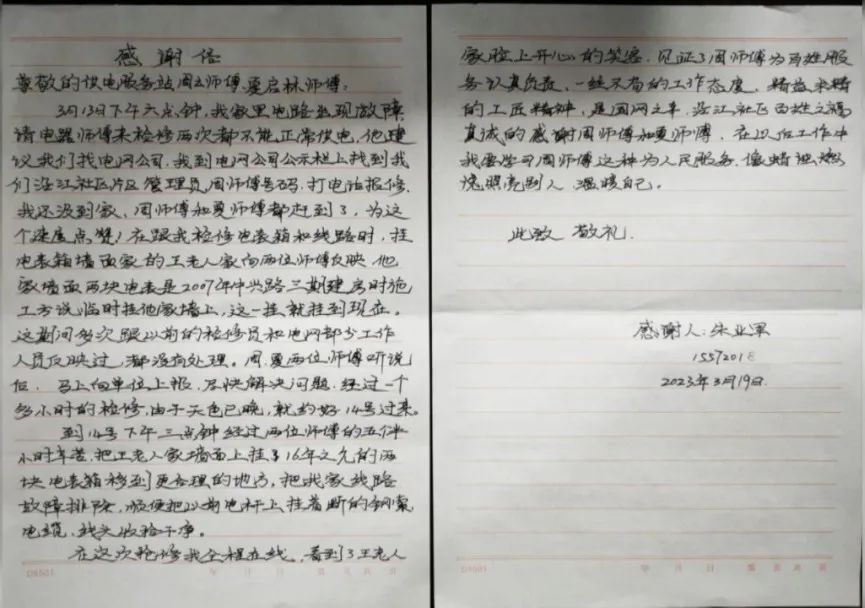 感谢信
尊敬的供电服务站周立师傅、夏启林师傅：
3月13日下午六点钟，我家里电路出现故障，
请电器师傅来检修两次都不能正常供电，他建
议我们找电网公司，我到电网公司公示栏上找到我
们沿江社区片区管理员周师傅号码，打电话报修，
我还没到家，周师傅和夏师傅都赶到了，为这
个速度点赞！在跟我检修电表箱和线路时，挂
电表箱墙面家的王老人家向两位师傅反映，他
家墙面两块电表是2007年中兴路三期建房时施
工方说临时挂他家墙上，这一挂就挂到现在。
这期间多次跟以前的检修员和电网部分工作
人员反映过，都没有处理。周、夏两位师傅听说
后，马上向单位上报，尽快解决问题，经过一个
多小时的检修，由于天色已晚，就约好14号过来。
到14号下午三点钟经过两位师傅的五个半
小时辛苦，把王老人家墙面上挂了16年之久的两
块电表箱移到更合理的地方，把我家线路
故障排除，顺便把以前电杆上挂着断的钢索
电缆，线头收拾干净。
在这次抢修我全程在线，看到了王老人
家脸上开心的笑容，见证了周师傅为百姓服
务认真负责、一丝不苟的工作态度，精益求精
的工匠精神，是国网之幸，沿江社区百姓之福
真诚的感谢周师傅和夏师傅，在以后工作中
我要学习周师傅这种为人民服务，像蜡烛燃
烧照亮别人 温暖自己。
此致 敬礼.
感谢人：朱业军
1557201
2023年3月19日.
D8501 年 月 日 第 页 共 页
D8501 年 月 日 第 页 共 页